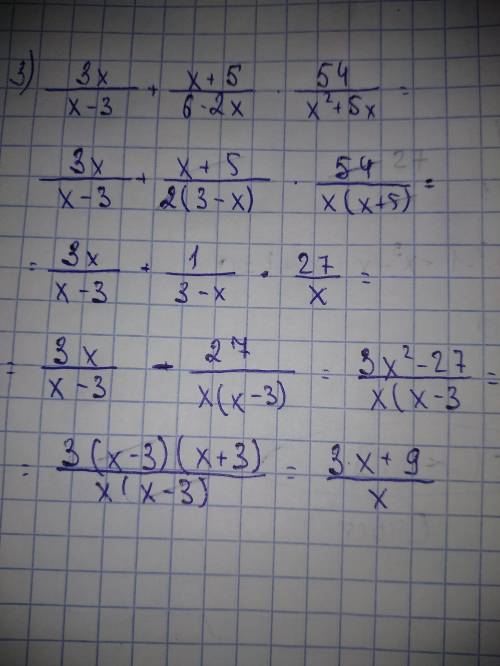 3) 3x/(x-3) + (x+5)/(6-2x) · 54/(x²+5x) =
3x/(x-3) + (x+5)/(2(3-x)) · 54 27/(x(x+5)) =
= 3x/(x-3) + 1/(3-x) · 27/x =
= 3x/(x-3) - 27/(x(x-3)) = (3x²-27)/(x(x-3 =
= 3(x-3)(x+3)/(x(x-3)) = (3·x+9)/x